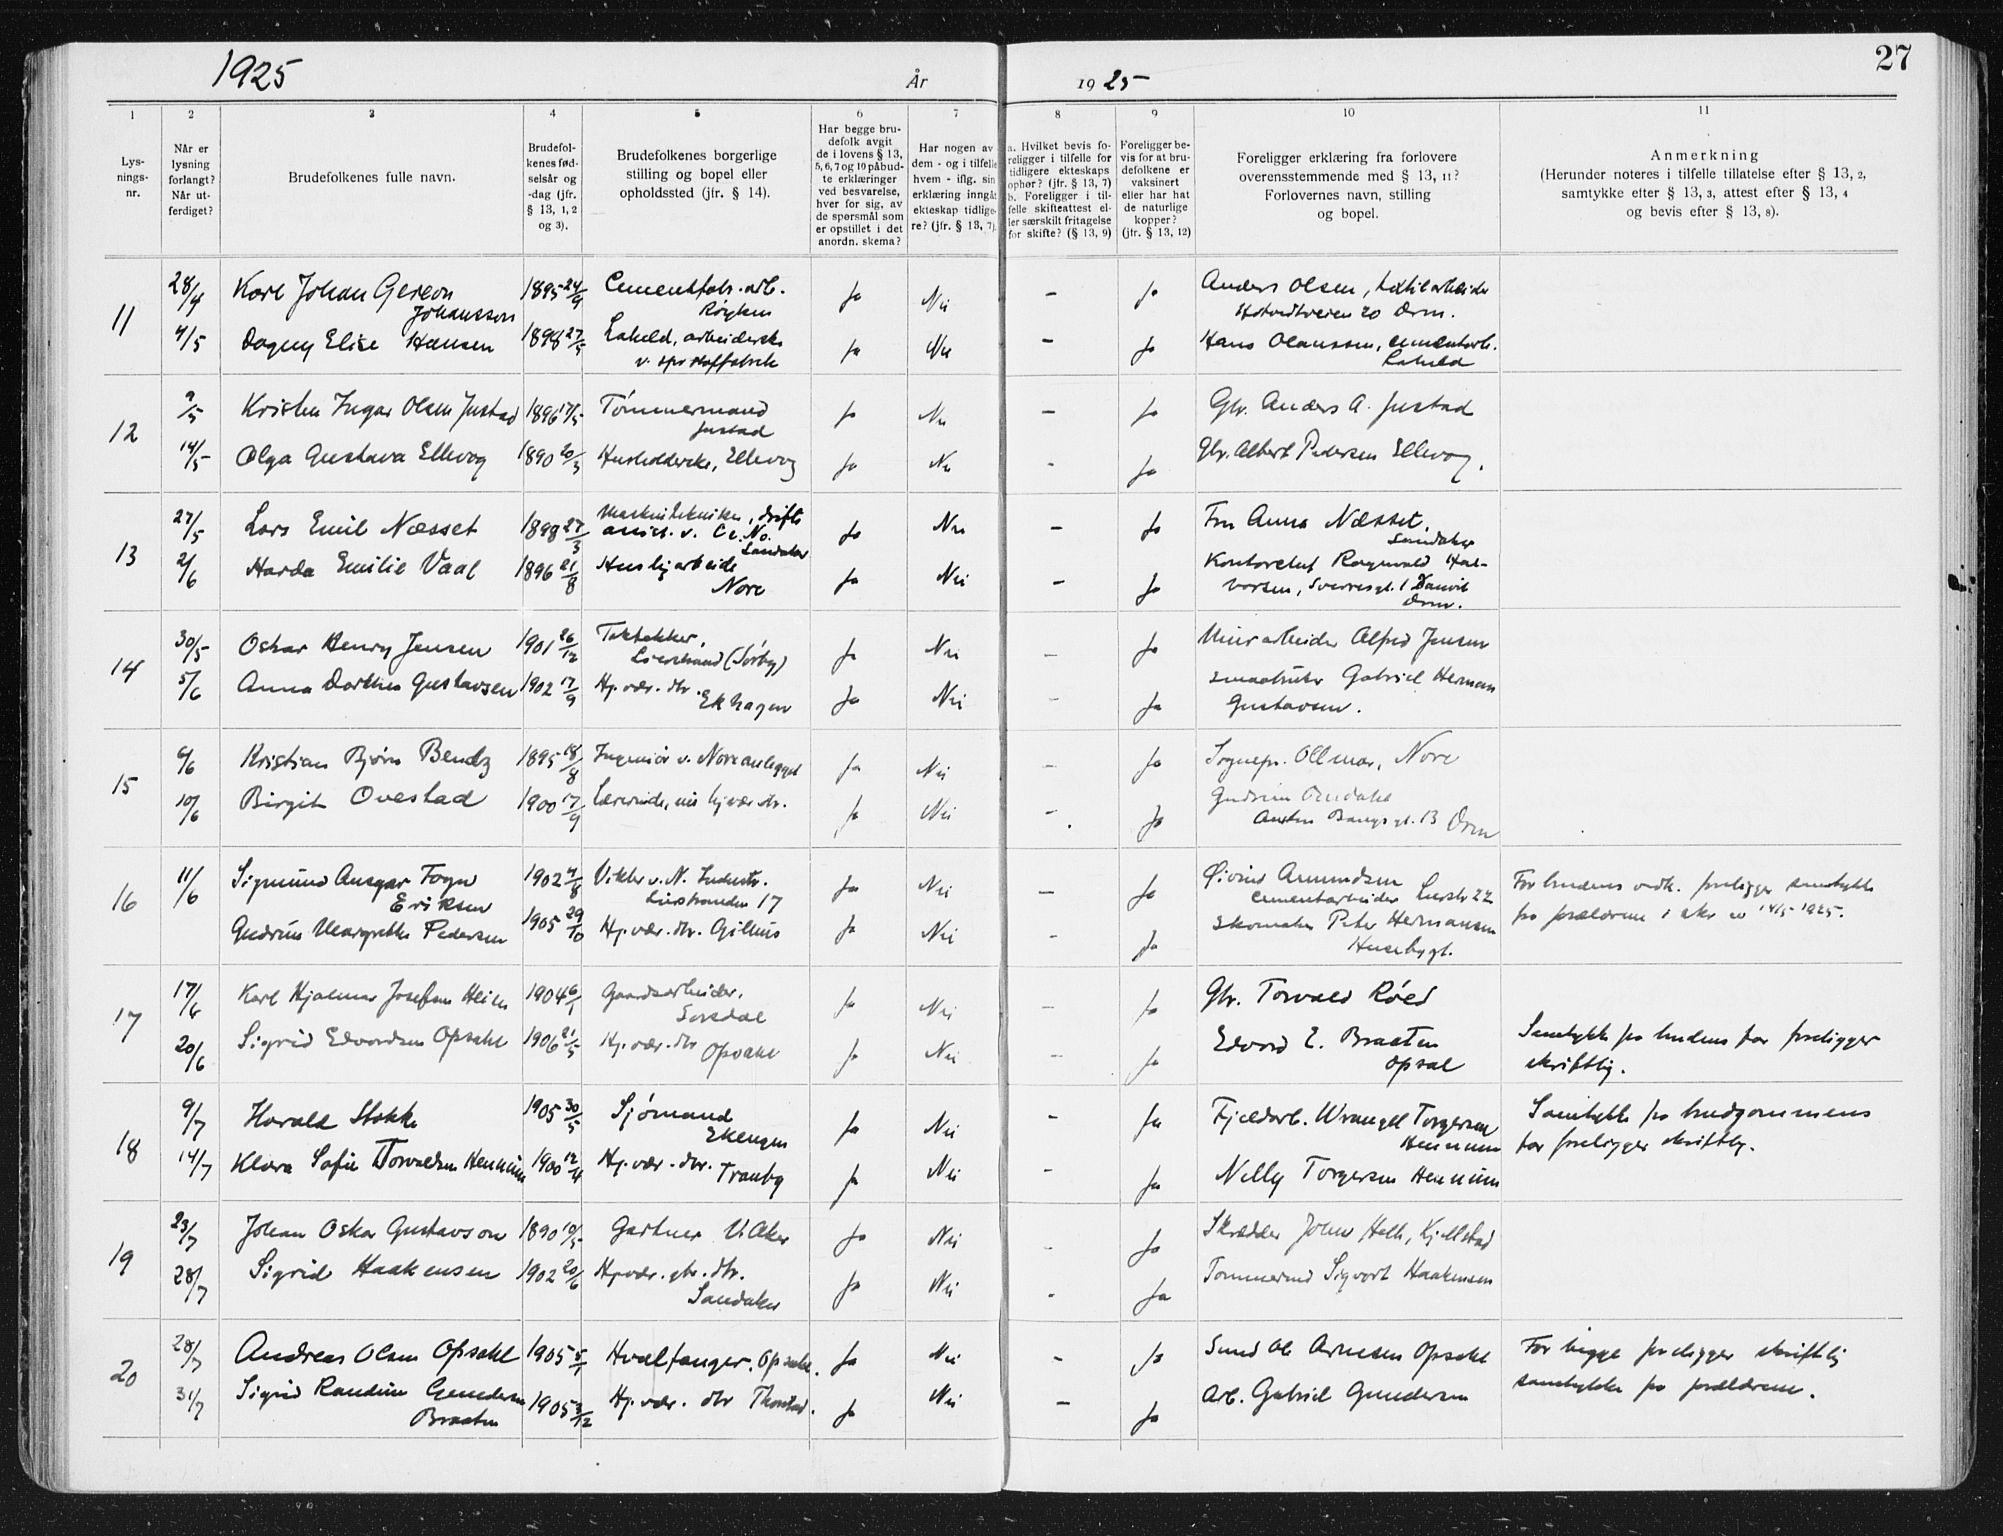 1925
År
19 25
27
1
2
3
4
5
6
7
8
9
10
11
Lys-
nings-
nr.
Når er
lysning
forlangt?
Når ut-
ferdiget?
Brudefolkenes fulle navn.
Brudefol-
kenes fød-
selsår og
-dag (jfr.
§ 13, 1, 2
og 3).
Brudefolkenes borgerlige
stilling og bopel eller
opholdssted (jfr. § 14).
Har begge bru-
defolk avgit
de i lovens § 13,
5, 6, 7 og 10 påbud-
te erklæringer
ved besvarelse,
hver for sig, av
de spørsmål som
er opstillet i det
anordn. skema?
Har nogen av
dem - og i tilfelle
hvem - iflg. sin
erklæring inngå
ekteskap tidlige-
re? (jfr. § 13, 7).
a. Hvilket bevis fo-
religger i tilfelle for
tidligere ekteskaps
ophør? (jfr. § 13, 7)
b. Foreligger i til-
felle skifteattest el-
ler særskilt fritagelse
for skifte? (§ 13, 9)
Foreligger be-
vis for at bru-
defolkene er
vaksinert
eller har hat
de naturlige
kopper?
(jfr. § 13, 12)
Foreligger erklæring fra forlovere
overensstemmende med § 13, 11?
Forlovernes navn, stilling
og bopel.
Anmerkning
(Herunder noteres i tilfelle tillatelse efter § 13, 2,
samtykke efter § 13, 3, attest efter § 13, 4
og bevis efter § 13, 8).
11
28/4 Karl Johan Gereon Johansson 1895 24/9 Cementfabr. arb. Røyken Ja Nei - Ja Anders Olsen, tekstilarbeider
Hotvedtveien 20 Drm.
4/5 Dagny Elise Hansen 1898 27/5 Laheld, arbeiderske Ja Nei - Ja Hans Olaussen, cementarb. Laheld
12
9/5 Kristen Ingar Olsen Justad 1896 17/5 Tømmermand Justad Ja Nei - Ja Gbr. Anders A. Justad
14/5 Olga Gustava Ellevog 1890 20/3 Husholderske, Ellevog Ja Nei - Ja Gbr. Albert Pedersen Ellevog.
13
27/5 Lars Emil Næsset 1898 27/3 Maskintekniker, drifts
assist. v. Ce. No. Sandaker Ja Nei - Ja Fru Anna Næsset, Sandaker
2/6 Harda Emilie Vaal 1896 21/8 Husbyarbeide Nore Ja Nei - Ja Kontorchef Ragnvald Hal-
vorsen, Sverresgt. 1 Danvik Drm.
14
30/5 Oskar Henry Jensen 1901 26/12 Taktekker, Lierstrand (Sørby) Ja Nei - Ja Murarbeider Alfred Jensen
5/6 Anna Dorthea Gustavsen 1902 17/9 Hj. vær. dtr. Ekhagen Ja Nei - Ja Smaabruker Gabriel Herman
Gustavsen.
15
6/6 Kristian Bjørn Bendz 1895 18/8 Ingeniør v. Noreanlegget Ja Nei - Ja Sognepr. Ollmar, Nore
10/6 Birgit Ovestad 1900 17/9 Lærerinde, nu hj. vær. dtr. Ja Nei - Ja Gudrun
Bangsgt. 13 Drm
16
11/6 Sigmund Ansgar Fogn Eriksen 1902 4/8 v. N. Industr.
Lierstranden 17 Ja Nei - Ja Øivind Amundsen
Cementarbeider Lierstr 22 For brudens vedk. foreligger samtykke
fra forældrene i skr. av 14/5 1925.
Gudrun Margrethe Pedersen 1905 29/10 Hj. vær. dtr. Gilhus Ja Nei - Ja Skomaker Peter Hermansen
Husebygt.
17
17/6 Karl Hjalmar Josefsen Heien 1904 6/1 Gaardsarbeider, Sørsdal Ja Nei - Ja Gbr. Torvald Røed
20/6 Sigrid Edvardsen Opsahl 1906 21/5 Hj. vær. dtr Opsahl Ja Nei - Ja Edvard E. Braaten Opsal Samtykke fra brudens far foreligger
skriftlig.
18
9/7 Harald Stokke 1905 30/5 Sjømand Ekengen Ja Nei - Ja Fjeldarb. Wrangell Torgersen Hennum Samtykke fra brudgommens
far foreligger skriftlig.
14/7 Klara Sofie Torvaldsen Hennum 1900 12/4 Hj. vær. dtr. Tranby Ja Nei - Ja Nelly Torgersen Hennum
19
23/7 Johan Oskar Gustavson 1890 10/5 Gartner Ulläker Ja Nei - Ja Skrædder Johan Helle, Kjellstad
28/7 Sigrid Haakensen 1902 20/6 Hj. vær. gbr. dtr. Sandaker Ja Nei - Ja Tømmermd Sigvart Haakensen
20
28/7 Andreas Olsen Opsahl 1905 5/1 Hvalfanger. Opsahl. Ja Nei - Ja Smed Ole Arnesen Opsahl For begge foreligger skriftlig
samtykke fra forældrene.
31/7 Sigrid Randine Gundersen Braaten 1905 3/12 Hj. vær. dtr Thorstad. Ja Nei - Ja Arb. Gabriel Gundersen